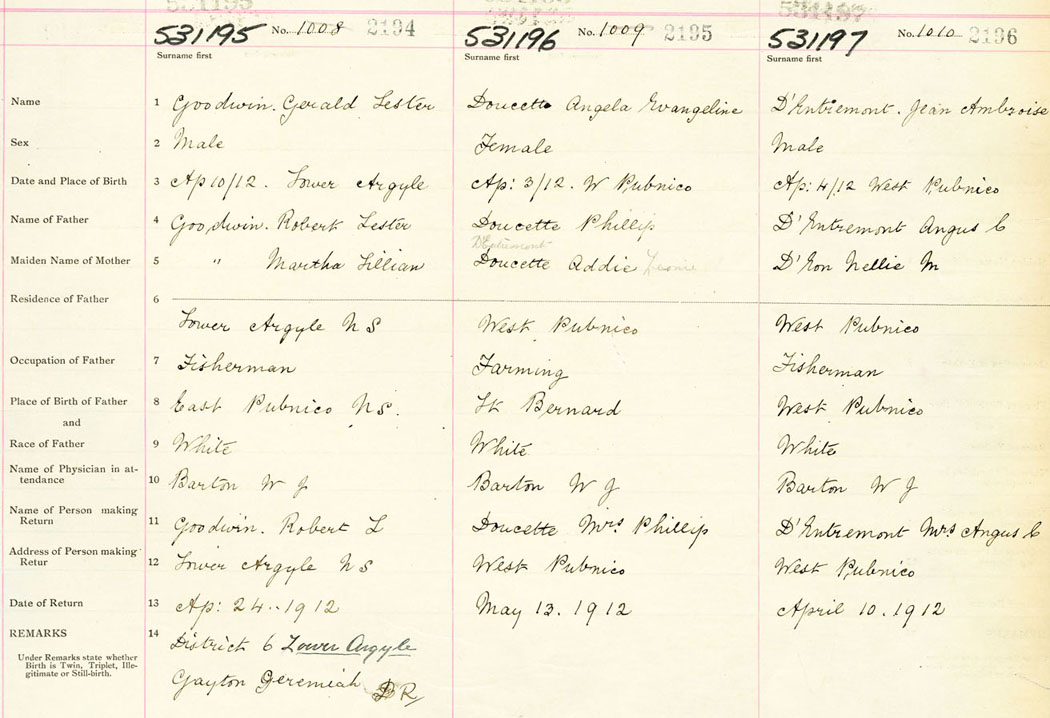 531195 No. 1008 2194
531196 No. 1009 2195
531197 No. 1010 2196
Surname first Surname first Surname first
Name 1 Goodwin. Gerald Lester Doucette Angela Evangeline D'Entremont. Jean Ambroise
Sex 2 Male Female Male
Date and Place of Birth 3 Ap 10/12. Lower Argyle Ap: 3/12. W Pubnico Ap: 4/12 West Pubnico
Name of Father 4 Goodwin. Robert Lester Doucette Phillip D'Entremont Angus C
D'Entremont
Maiden Name of Mother 5 " Martha Lillian Doucette Addie D'Eon Nellie M
Residence of Father 6
Lower Argyle N S West Pubnico West Pubnico
Occupation of Father 7 Fisherman Farming Fisherman
Place of Birth of Father 8 East Pubnico N S. St Bernard West Pubnico
and
Race of Father 9 White White White
Name of Physician in at-
tendance 10 Barton W J Barton W J Barton W J
Name of Person making
Return 11 Goodwin. Robert L Doucette Mrs Phillip D'Entremont Mrs Angus C
Address of Person making
Retur 12 Lower Argyle N S West Pubnico West Pubnico
Date of Return 13 Ap: 24..1912 May 13. 1912 April 10. 1912
REMARKS 14 District 6 Lower Argyle
Under Remarks state whether
Birth is Twin, Triplet, Ille-
gitimate or Still-birth.
Gayton Geremiah D R